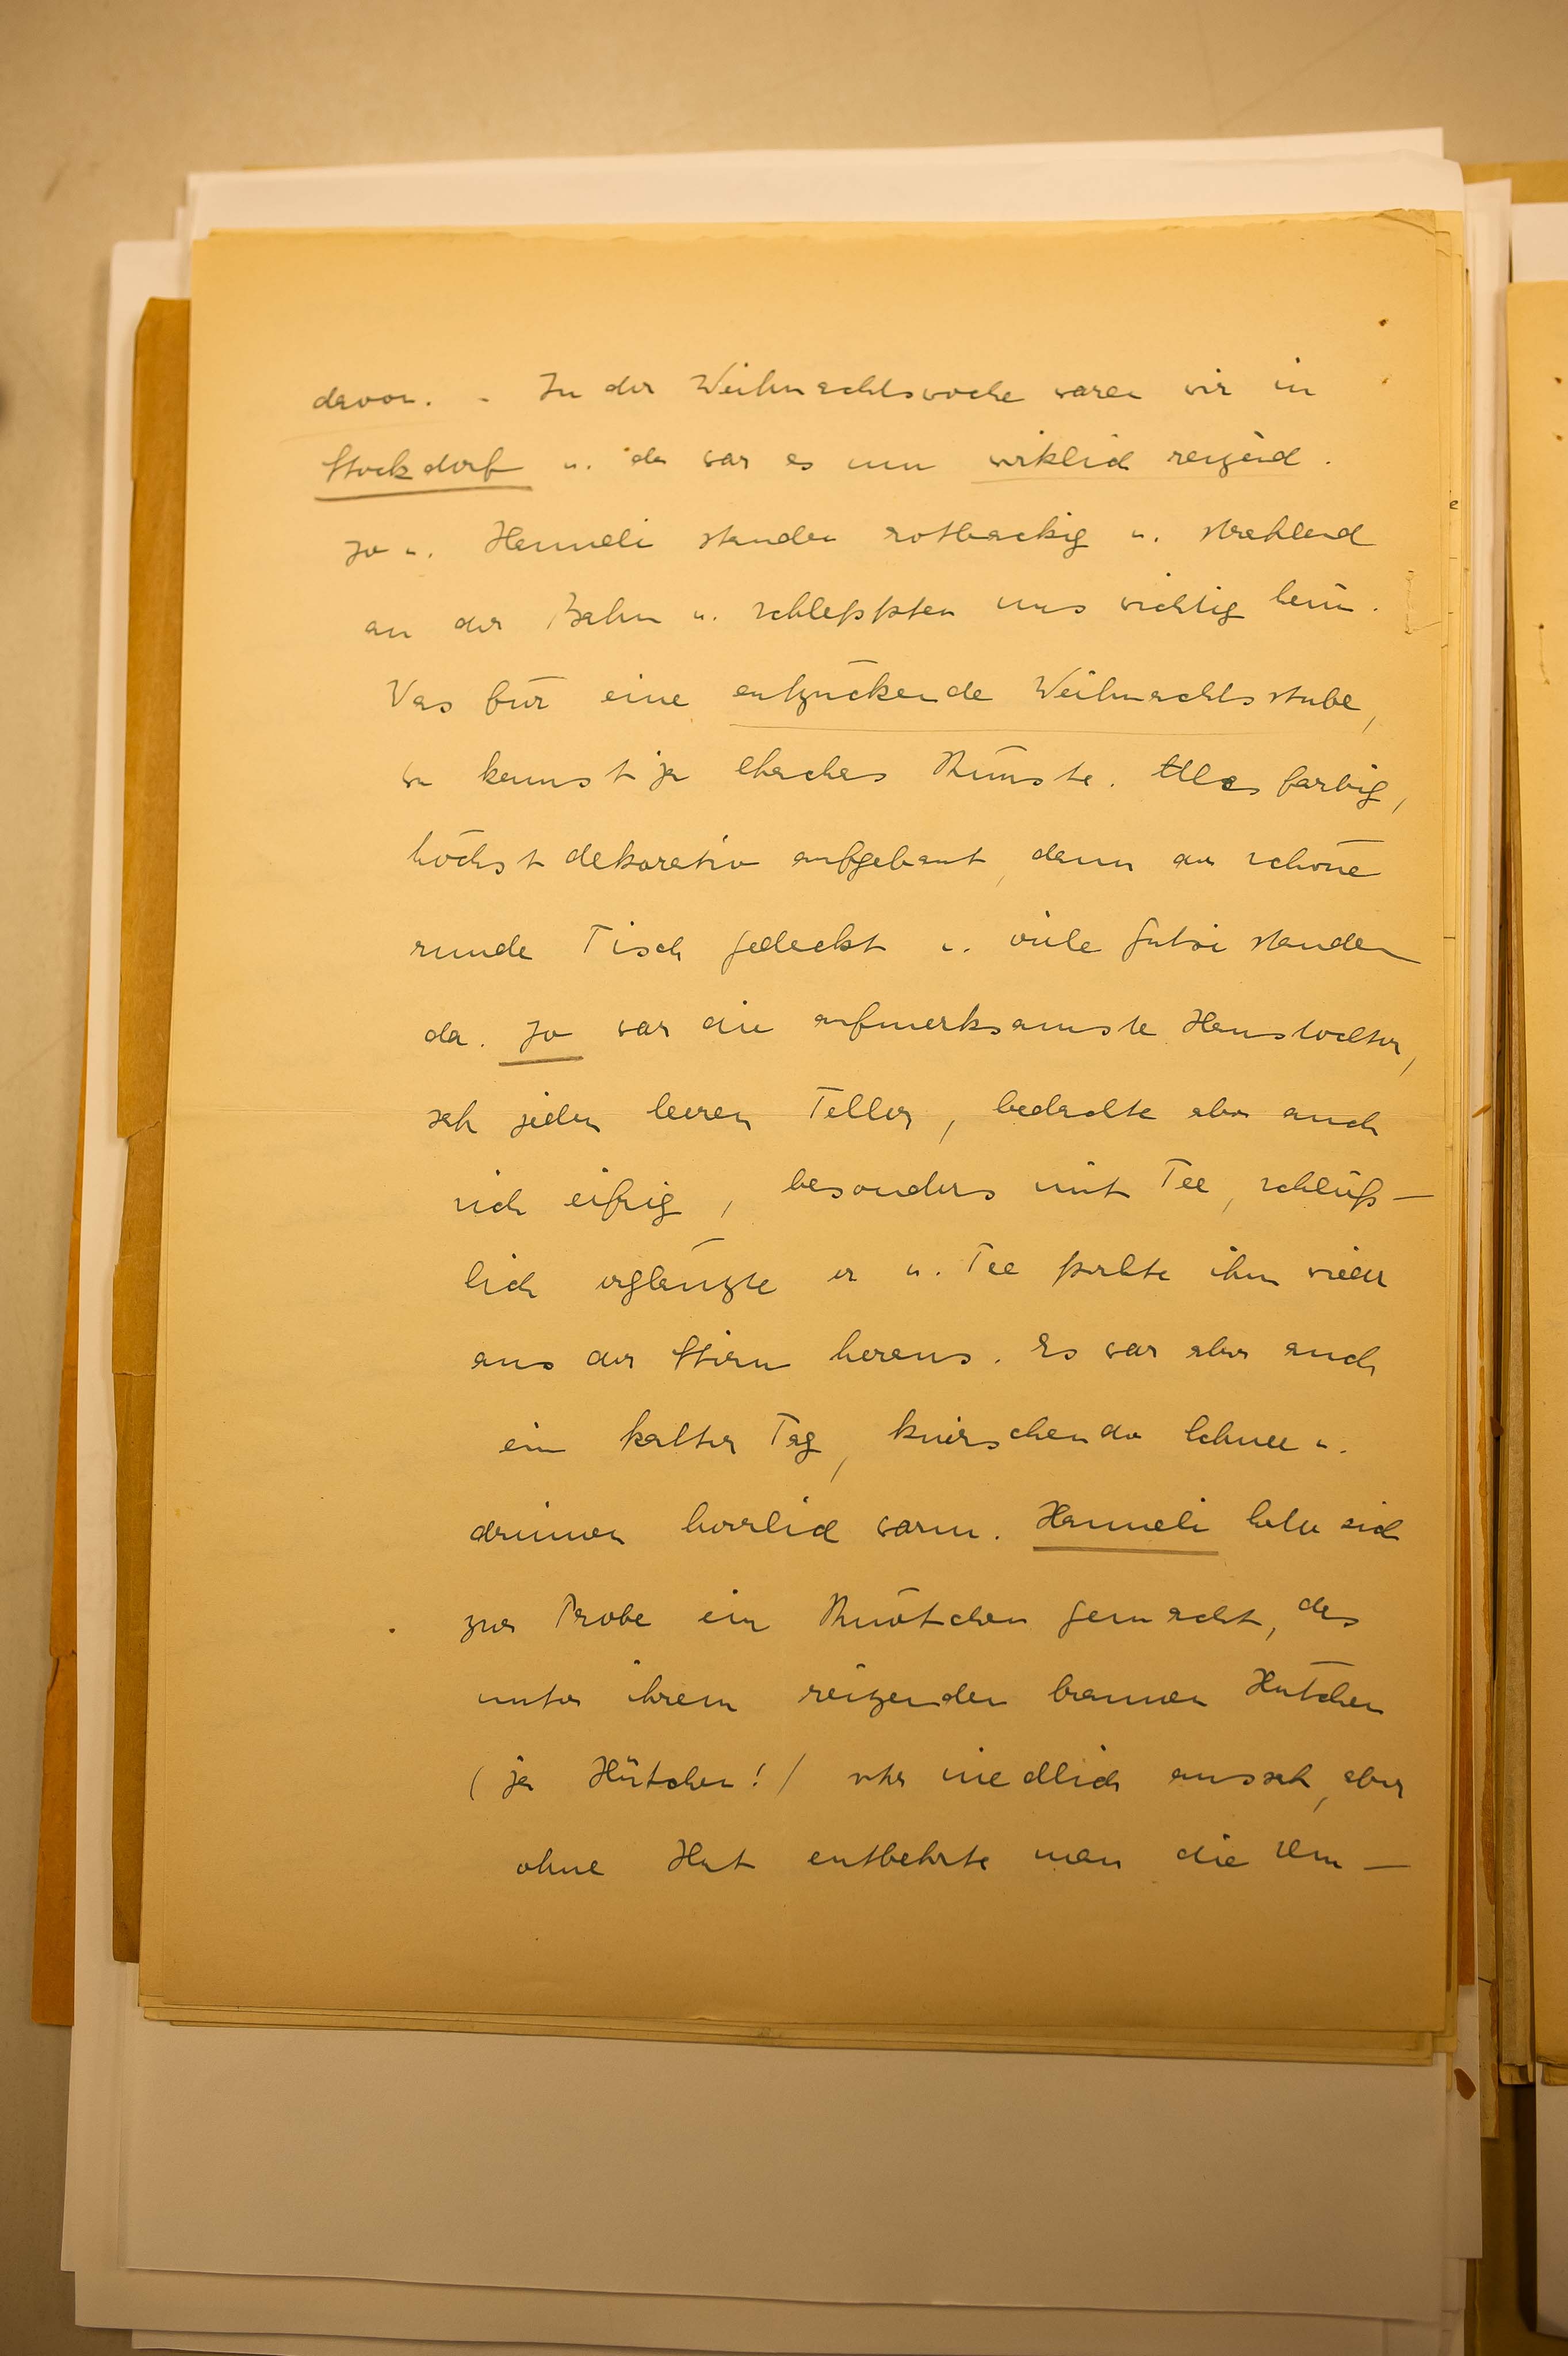 davon. - In der Weihnachtswoche waren wir in
Stockdorf u. da war es nun wirklich reizend.
Jo u. Hanneli standen rotbackig u. strahlend
an der Bahn u. schleppten uns richtig heim.
Was für eine entzückende Weihnachtsstube,
Du kennst ja Künste. Alles farbig,
höchst dekorativ aufgebaut, dann der schöne
runde Tisch gedeckt u. viele Gutsi standen
da. Jo war die aufmerksamste Haustochter,
sah jeden leeren Teller, bedachte aber auch
sich eifrig, besonders mit Tee, schließ-
lich erglänzte er u. Tee perlte ihm wieder
aus der Stirn heraus. Es war aber auch
ein kalter Tag, knirschender Schnee u.
drinnen herrlich warm. Hanneli hatte sich
zur Probe ein Knötchen gemacht, das
unter ihrem reizenden braunen Hütchen
(ja Hütchen!) sehr niedlich aussah, aber
ohne Hut entbehrte man die